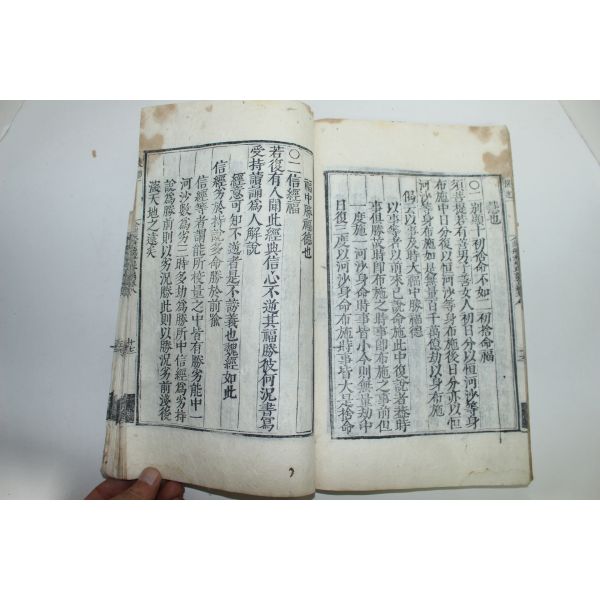 基也
○二別顯十初捨命不如二初捨命福
須菩提若有善男子善女人初日分以恒河沙等身
布施中日分復以恒河沙等身布施後日分亦以恒
河沙等身布施如是無量百千萬億劫以身布施
偈云以事及時大福中勝福德
以事等者以前來已說命施此中復說者
事俱勝故時即布施之時事即布施之事前但
一度施一河沙身命時事皆小今則無量劫中
日復三度以河沙身命布施時事皆大是捨命
福中勝福德也
○二信經福
若復有人聞此經典信心不逆其福勝彼何況書寫
受持讀誦爲人解說
經意可知不逆者是不謗義也魏經如此
信經劣於持說多命勝於前喩
信經等者謂能所校量之中皆有勝劣能中一
河沙數爲劣三時多劫爲勝所中信經爲劣持
說爲勝前則以劣況勝此則以勝況劣前淺後
深天地之遠矣